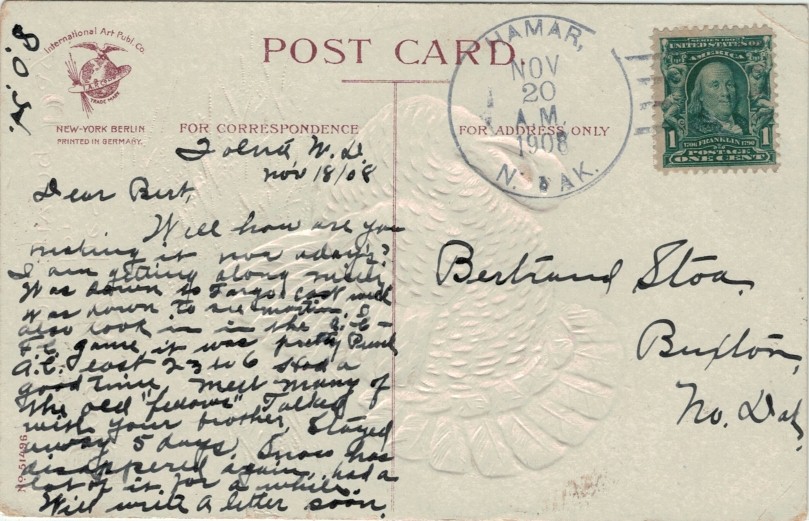 International Art Publ. Co.
TRADE MARK
NEW-YORK BERLIN
PRINTED IN GERMANY.
POST CARD.
HAMAR,
NOV
20
A.M.
1908
N. DAK.
SERIES 1902
UNITED STATES OF
AMERICA
1706 FRANKLIN 1790
1 POSTAGE 1
ONE CENT
FOR CORRESPONDENCE
FOR ADDRESS ONLY
Tolna, N.D.
Nov 18/08
Dear Bert,
Will how are you
making it now adays?
I am getting along nicely
Was down to Fargo last week
was down to see Martin. I
also took in in the A.C-
F.C. game it was pretty
A.C. lost 23 to 6 Had a
good time, meet many of
the old "fellows" Talked
with your brother, Stayed
away 5 days. Snow has
disappered again, had a
lot of it for a while.
Will write a letter soon.
Bertrand Stoa,
Buxton,
No. Dak,
No. 51496